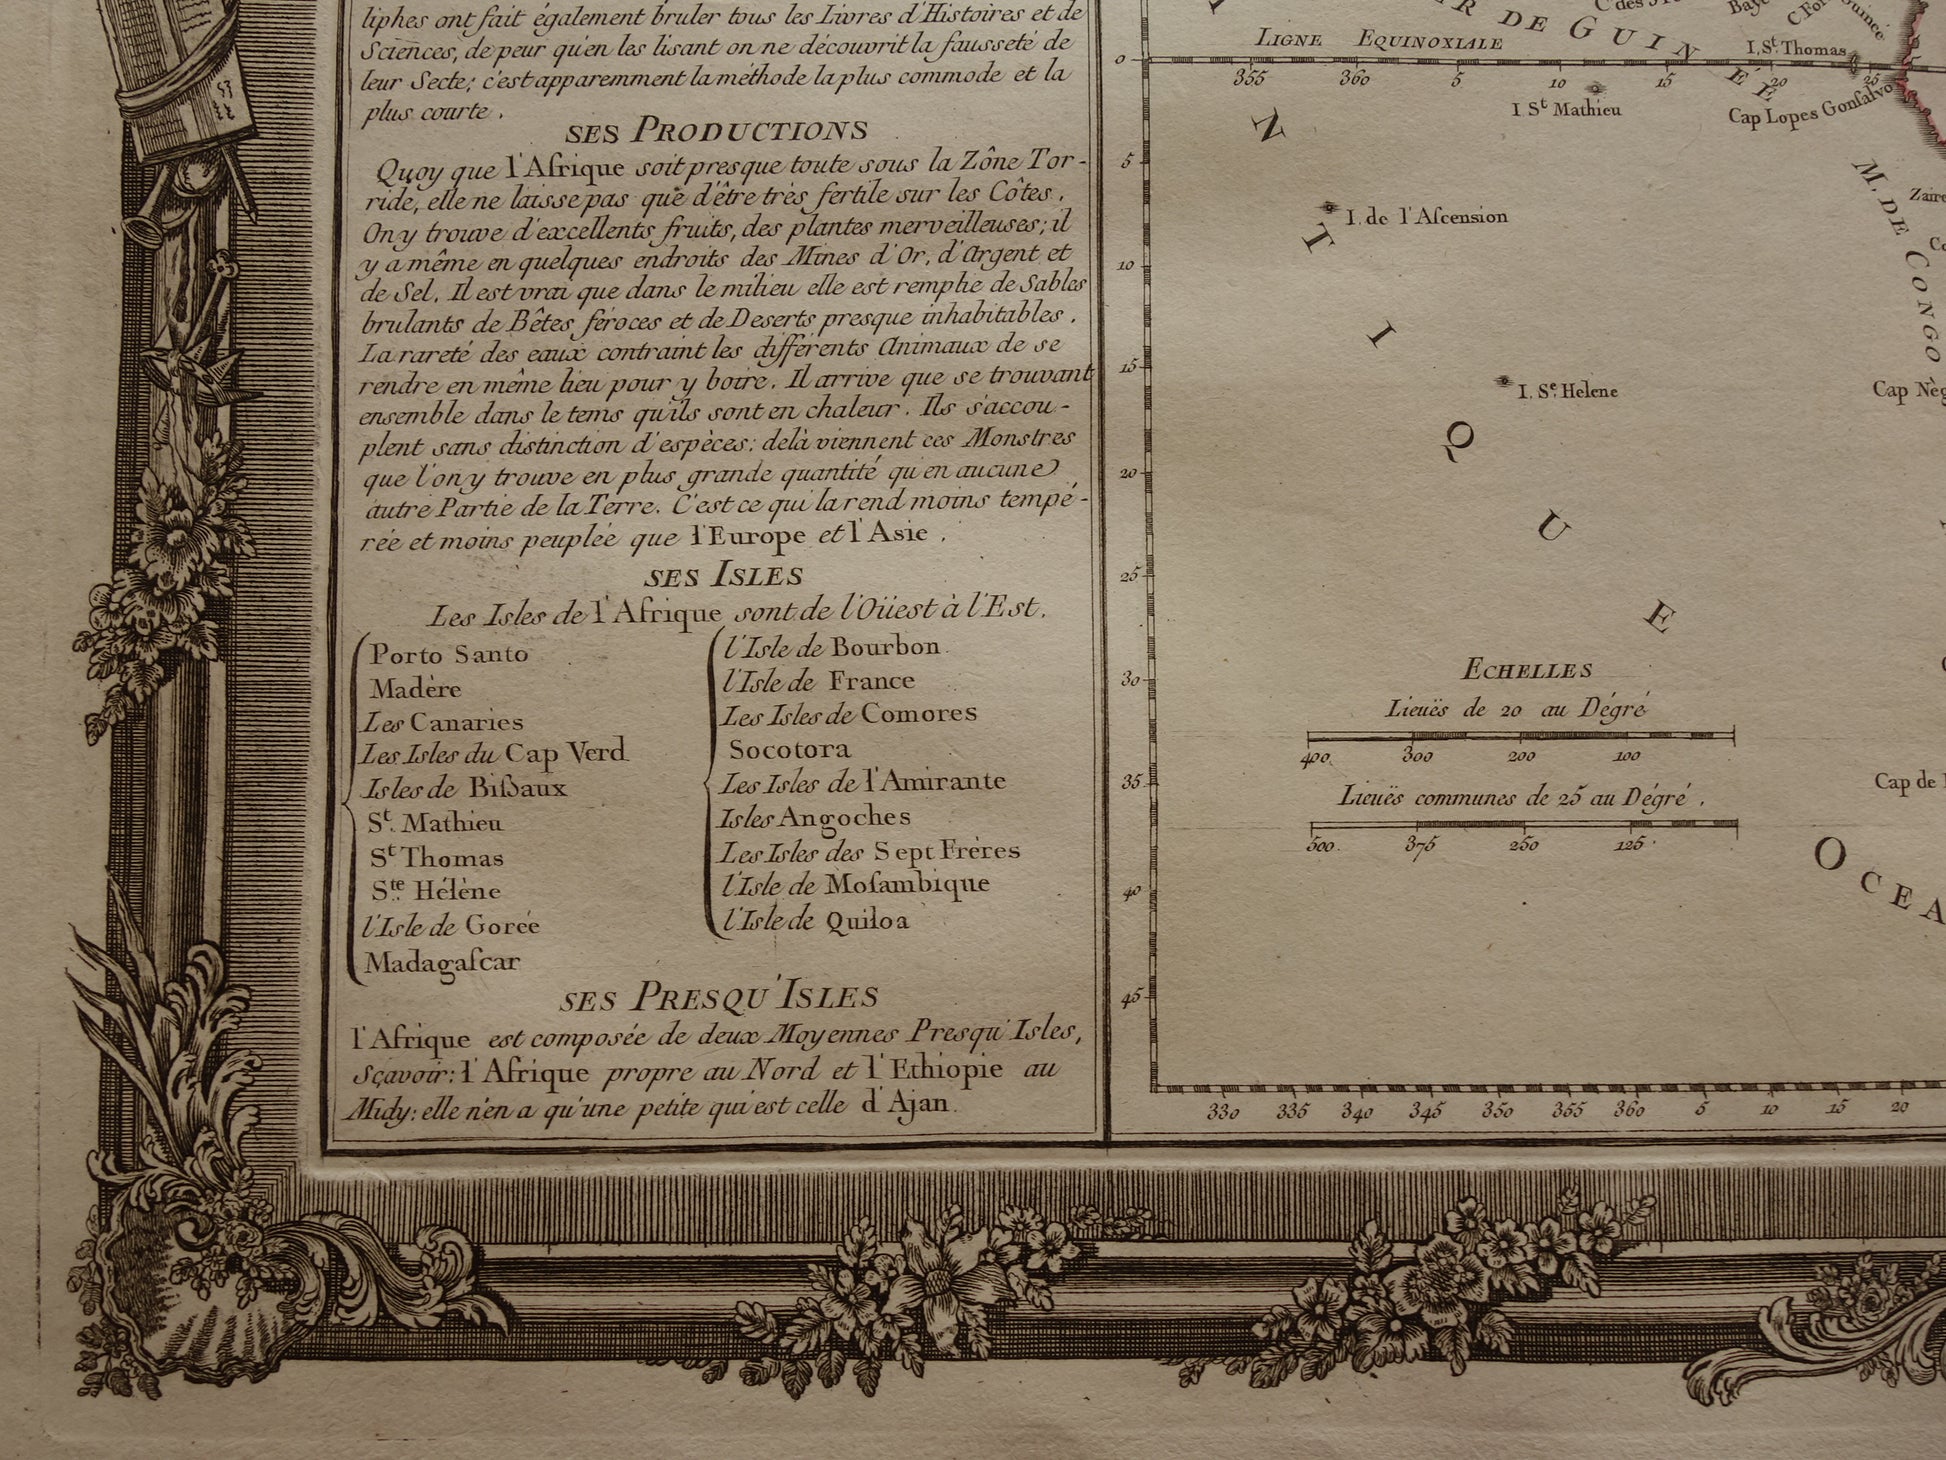 liphes ont fait également bruler tous les Livres d'Histoires et de
Sciences, de peur qu'en les lisant on ne découvrit la fausseté de
leur Secte; c'est apparemment la méthode la plus commode et la
plus courte.
SES PRODUCTIONS
Quoy que l'Afrique soit presque toute sous la Zône Tor-
ride, elle ne laisse pas que d'être très fertile sur les Côtes.
On y trouve d'excellents fruits, des plantes merveilleuses; il
y a même en quelques endroits des Mines d'Or, d'Argent et
de Sel. Il est vrai que dans le milieu elle est remplie de Sables
brulants de Bêtes féroces et de Deserts presque inhabitables.
La rareté des eaux contraint les différents Animaux de se
rendre en même lieu pour y boire. Il arrive que se trouvant
ensemble dans le tems qu'ils sont en chaleur. Ils s'accou-
plent sans distinction d'espèces: delà viennent ces Monstres
que l'on y trouve en plus grande quantité qu'en aucune
autre Partie de la Terre. C'est ce qui la rend moins tempé-
rée et moins peuplée que l'Europe et l'Asie.
SES ISLES
Les Isles de l'Afrique sont de l'Oüest à l'Est.
Porto Santo
Madère
Les Canaries
Les Isles du Cap Verd
Isles de Bißaux
St. Mathieu
St Thomas
Ste. Hélène
l'Isle de Gorée
Madagaſcar
l'Isle de Bourbon
l'Isle de France
Les Isles de Comores
Socotora
Les Isles de l'Amirante
Isles Angoches
Les Isles des Sept Frères
l'Isle de Moſambique
l'Isle de Quiloa
SES PRESQU'ISLES
l'Afrique est composée de deux Moyennes Presqu'Isles,
Sçavoir: l'Afrique propre au Nord et l'Ethiopie au
Midy: elle n'en a qu'une petite qui est celle d'Ajan.
DE GUINÉE
LIGNE EQUINOXIALE
I. St. Thomas
0
355 360 5 10 15 20 25
I St Mathieu
Cap Lopes Gonſalvo
N T I Q U E
M. DE CONGO
I. de l'Aſcension
I. Se. Helene
5
10
15
20
25
30
35
40
45
ECHELLES
Lieuës de 20 au Dégré
400 300 200 100
Lieuës communes de 25 au Dégré.
500 375 250 125
Cap de
OCEA
330 335 340 345 350 355 360 5 10 15 20
53